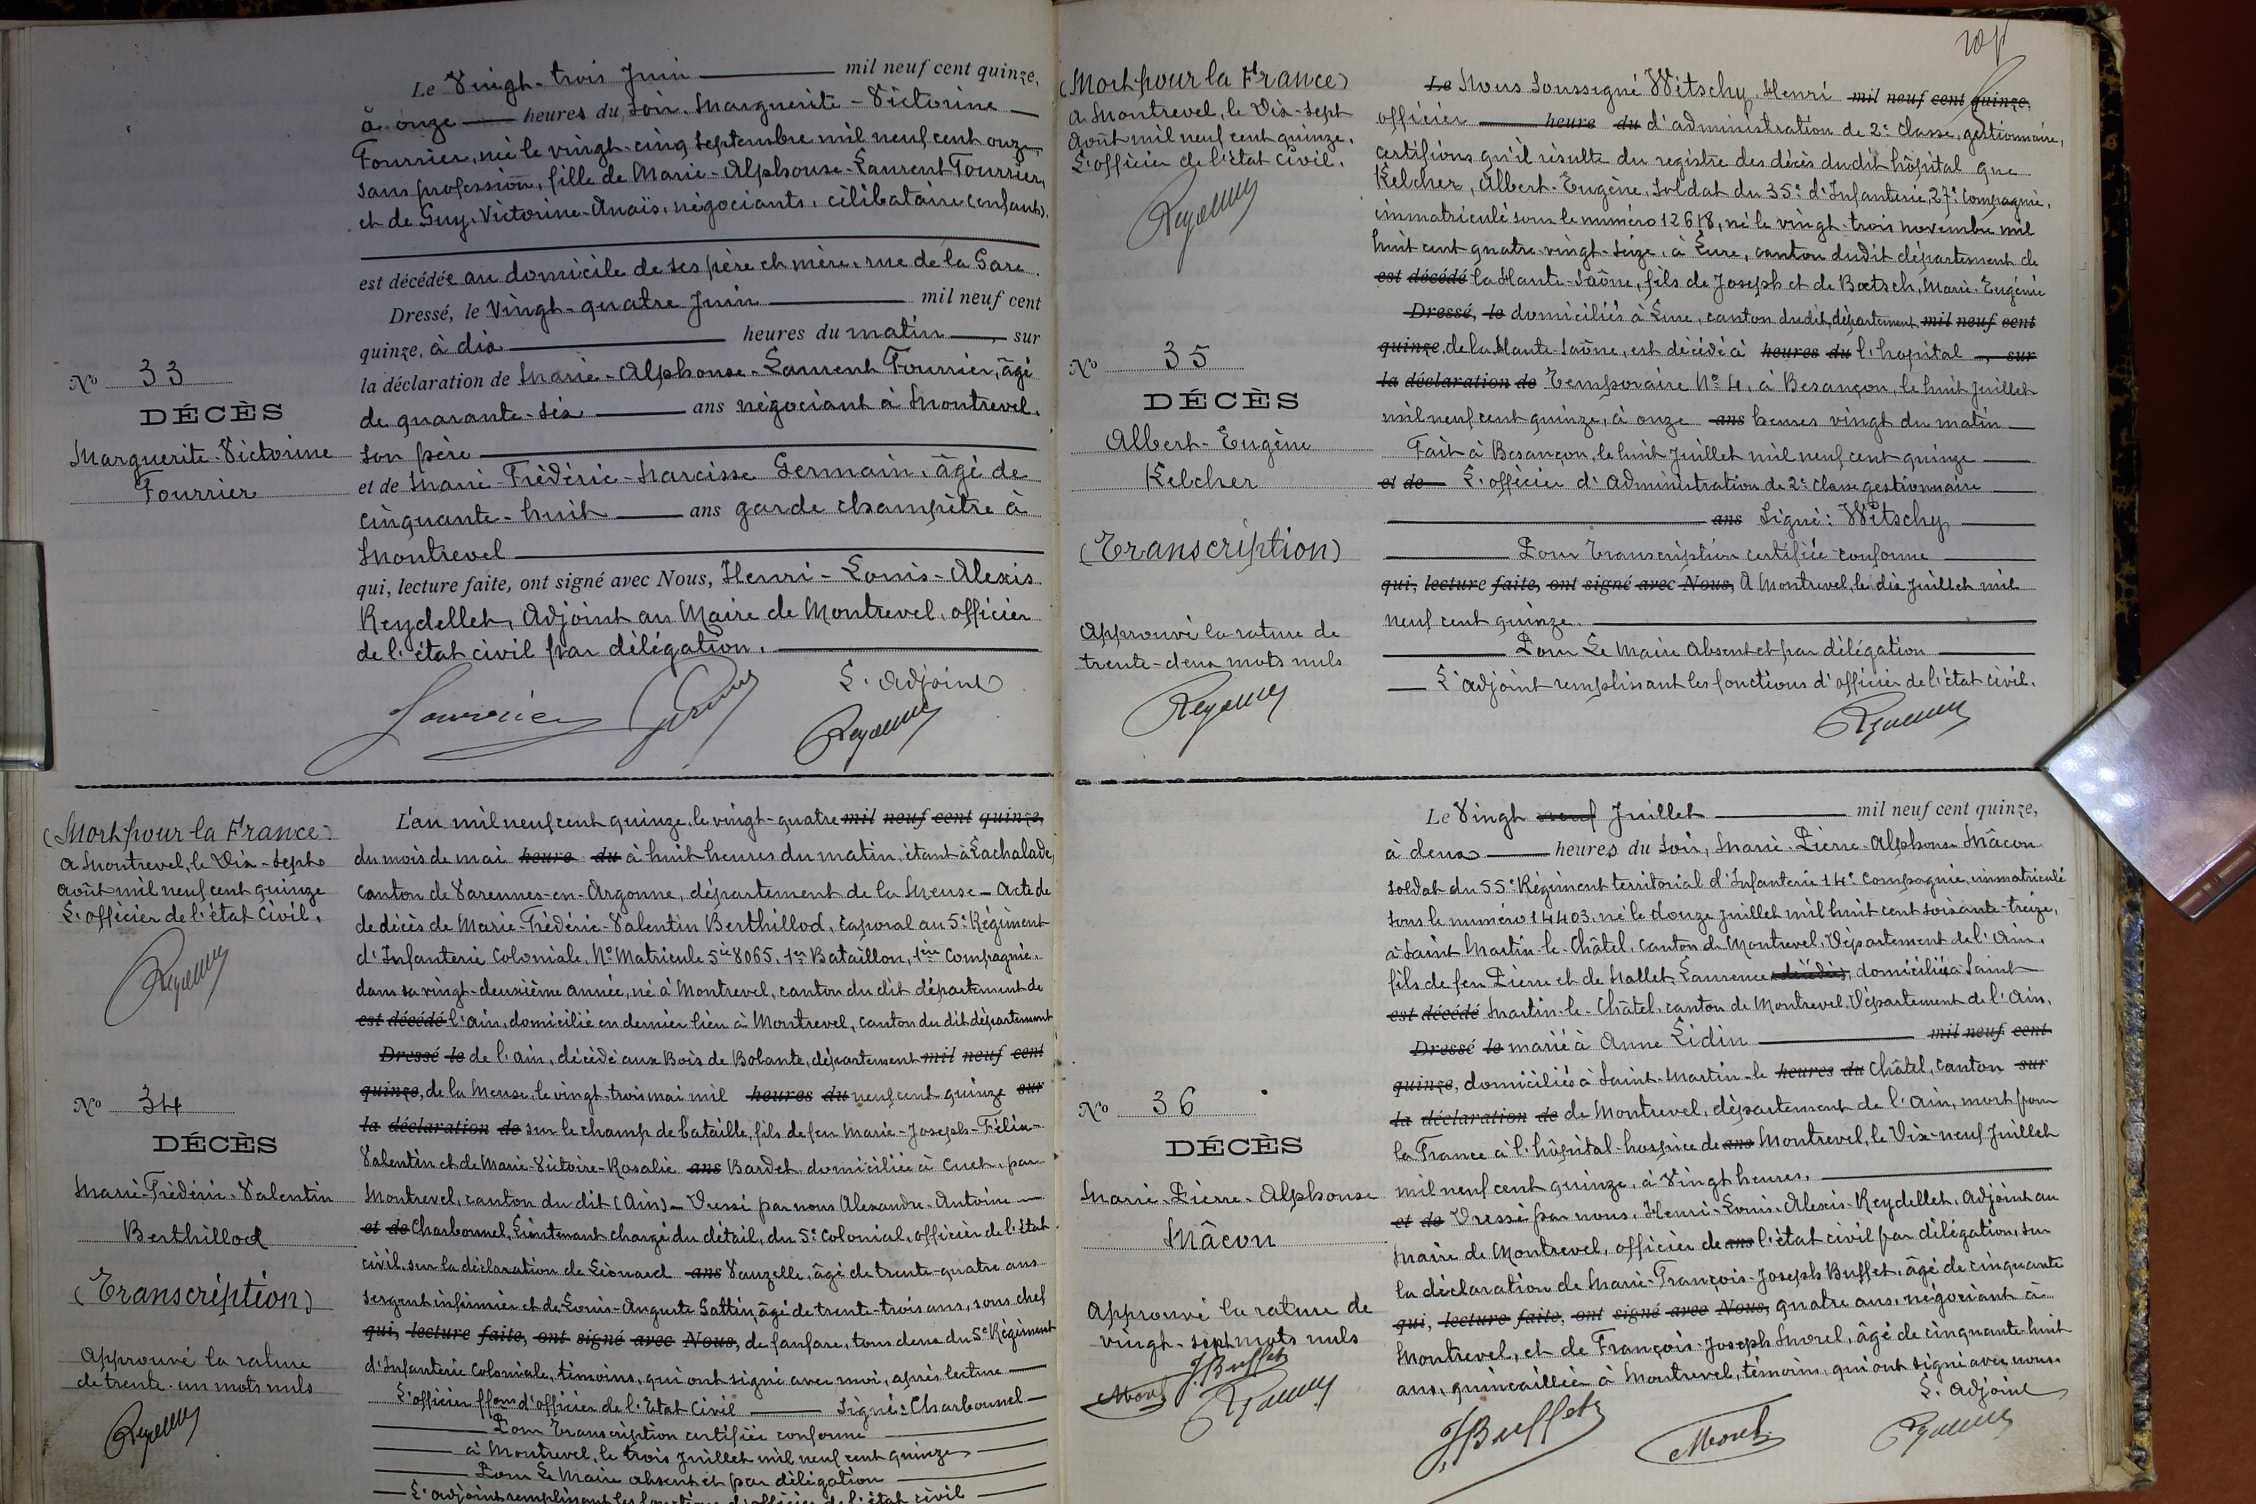 Le Vingt-trois Juin mil neuf cent quinze,
à onze heures du soir, Marguerite-Victorine
Fourrier, née le vingt-cinq septembre mil neuf cent onze,
sans profession, fille de Marie-Alphonse-Laurent Fourrier,
et de Guy, Victorine-Anaïs, négociants, célibataire (enfant).
est décédée au domicile de ses père et mère, rue de la Gare.
Dressé, le Vingt-quatre Juin mil neuf cent
quinze, à dix heures du matin, sur
la déclaration de Marie-Alphonse-Laurent Fourrier, âgé
de quarante-six ans négociant à Montrevel,
son père
et de Marie-Frédéric-Narcisse Germain, âgé de
cinquante-huit ans garde champêtre à
Montrevel
qui, lecture faite, ont signé avec Nous, Henri-Louis-Alexis
Reydellet, Adjoint au Maire de Montrevel, officier
de l'état civil par délégation.
L'adjoint
No 33
DÉCÈS
Marguerite-Victorine
Fourrier
(Mort pour la France)
A Montrevel, le Dix-sept
août mil neuf cent quinze
L'officier de l'état civil.
No 34
DÉCÈS
Marie-Frédéric-Valentin
Berthillod
(Transcription)
Approuvé la rature
de trente-un mots nuls
L'an mil neuf cent quinze, le vingt-quatre mil neuf cent quinze,
du mois de mai heure du à huit heures du matin, étant à Lachalade,
canton de Varennes-en-Argonne, département de la Meuse - Acte de
de décès de Marie-Frédéric-Valentin Berthillod, caporal au 5e Régiment
d'Infanterie Coloniale, No Matricule 5ie 8065, 1er Bataillon, 1ère Compagnie,
dans sa vingt-deuxième année, né à Montrevel, canton du dit département de
est décédé l'ain, domicilié en dernier lieu à Montrevel, canton du dit département
Dressé le de l'ain, décédé aux Bois de Bolante, département mil neuf cent
quinze, de la Meuse, le vingt-trois mai mil heures du neuf cent quinze sur
la déclaration de sur le champ de bataille, fils de feu Marie-Joseph-Félix-
Valentin et de Marie-Victoire-Rosalie ans Bardet domiciliée à Cuet, par
Montrevel, canton du dit (Ain) - Dressé par nous Alexandre-Antoine
et de Charbonnel, Lieutenant chargé du détail, du 5e Colonial, officier de l'état
civil, sur la déclaration de Léonard ans Vauzelle, âgé de trente-quatre ans
sergent infirmier et de Louis-Auguste Gattin, âgé de trente-trois ans, sous chef
qui, lecture faite, ont signé avec Nous, de fanfare, tous deux du 5e Régiment
d'Infanterie Coloniale, témoins, qui ont signé avec moi, après lecture
L'officier ffons d'officier de l'Etat Civil Signé: Charbonnel
Pour Transcription certifiée conforme
à Montrevel, le trois Juillet mil neuf cent quinze
Pour Le Maire absent et par délégation
L'adjoint remplissant les fonctions d'officier de l'état civil
(Mort pour la France)
A Montrevel, le Dix-sept
Août mil neuf cent quinze.
L'officier de l'état civil.
No 35
DÉCÈS
Albert-Eugène
Kelcher
(Transcription)
Approuvé la rature de
trente-deux mots nuls
Le Nous soussigné Witschy, Henri mil neuf cent quinze,
officier heure du d'administration de 2e Classe, gestionnaire,
certifions qu'il résulte du registre des décès dudit hôpital que
Kelcher, Albert-Eugène, soldat du 35e d'Infanterie, 27e Compagnie,
immatriculé sous le numéro 12618, né le vingt-trois novembre mil
huit cent quatre-vingt-seize, à Lure, canton dudit département de
est décédé la Haute-Saône, fils de Joseph et de Bœtsch, Marie-Eugénie
Dressé, le domiciliés à Lure, canton dudit, département mil neuf cent
quinze de la Haute-Saône, est décédé à heures du l'hopital sur
la déclaration de Temporaire No 4, à Besançon, le huit Juillet
mil neuf cent quinze, à onze ans heures vingt du matin
Fait à Besançon, le huit Juillet mil neuf cent quinze
et de L'officier d'Administration de 2e Classe gestionnaire
ans Signé: Witschy
Pour Transcription certifiée conforme
qui, lecture faite, ont signé avec Nous, A Montrevel, le dix Juillet mil
neuf cent quinze.
Pour Le Maire Absent et par délégation
L'adjoint remplissant les fonctions d'officier de l'état civil.
No 36
DÉCÈS
Marie-Pierre-Alphonse
Mâcon
Approuvé la rature de
vingt-sept mots nuls
J Buffet
Morel
Le Vingt neuf Juillet mil neuf cent quinze,
à deux heures du soir, Marie-Pierre-Alphonse Mâcon
soldat du 55e Régiment territorial d'Infanterie 14e Compagnie, immatriculé
sous le numéro 14403, né le douze Juillet mil huit cent soixante-treize,
à Saint Martin-le-Châtel, canton de Montrevel, Département de l'Ain,
fils de feu Pierre et de Mallet, Laurence domiciliée à Saint
est décédé Martin-le-Châtel, canton de Montrevel, Département de l'Ain,
Dressé le marié à Anne Lidin mil neuf cent
quinze, domiciliés à Saint-Martin-le heures du Châtel, canton sur
la déclaration de de Montrevel, département de l'Ain, mort pour
la France à l'hôpital-hospice de ans Montrevel, le Dix-neuf Juillet
mil neuf cent quinze, à Vingt heures,
et de Dressé par nous, Henri-Louis-Alexis-Reydellet, Adjoint au
Maire de Montrevel, officier de ans l'état civil par délégation, sur
la déclaration de Marie-François-Joseph Buffet, âgé de cinquante
qui, lecture faite, ont signé avec Nous, quatre ans, négociant à
Montrevel, et de François-Joseph Morel, âgé de cinquante-huit
ans, quincaillier à Montrevel, témoins, qui ont signé avec nous.
L'adjoint
J Buffet
Morel